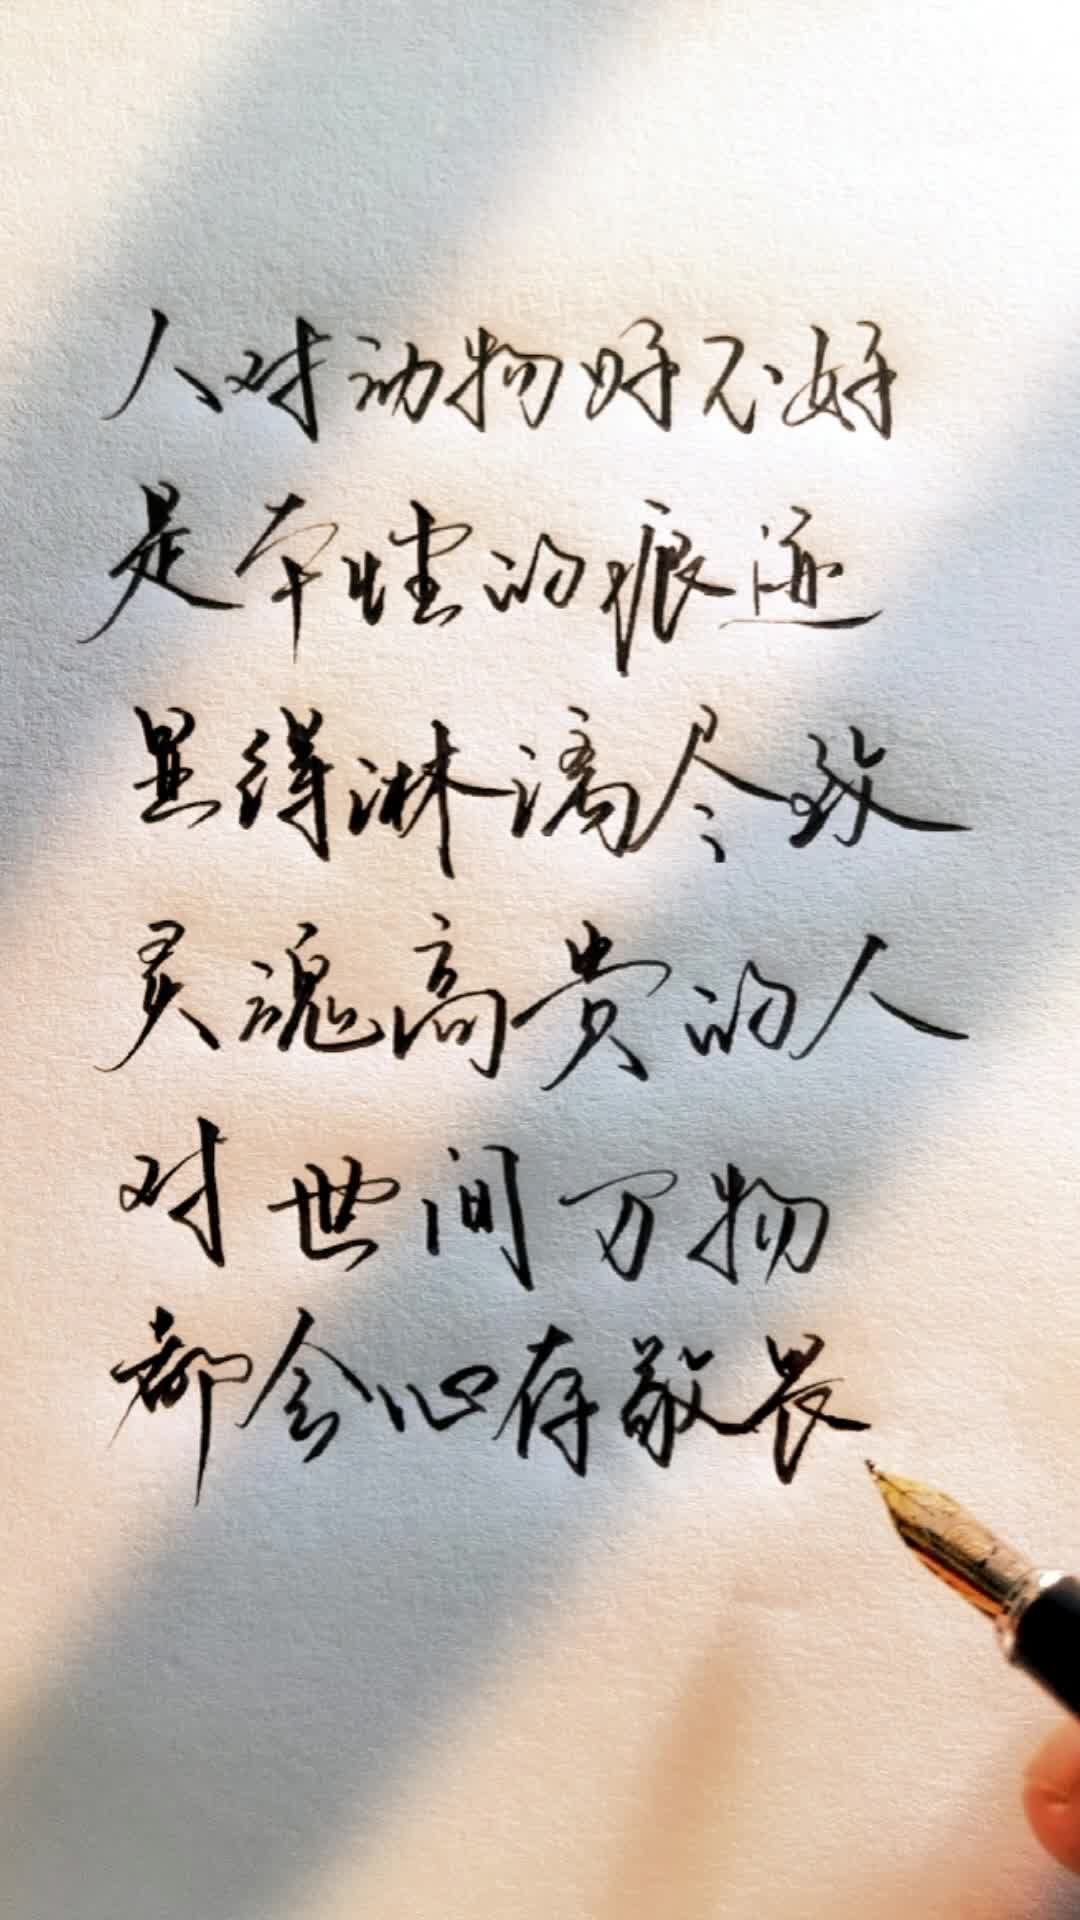 人对动物好不好
是本性的痕迹
显得淋漓尽致
灵魂高贵的人
对世间万物
都会心存敬畏